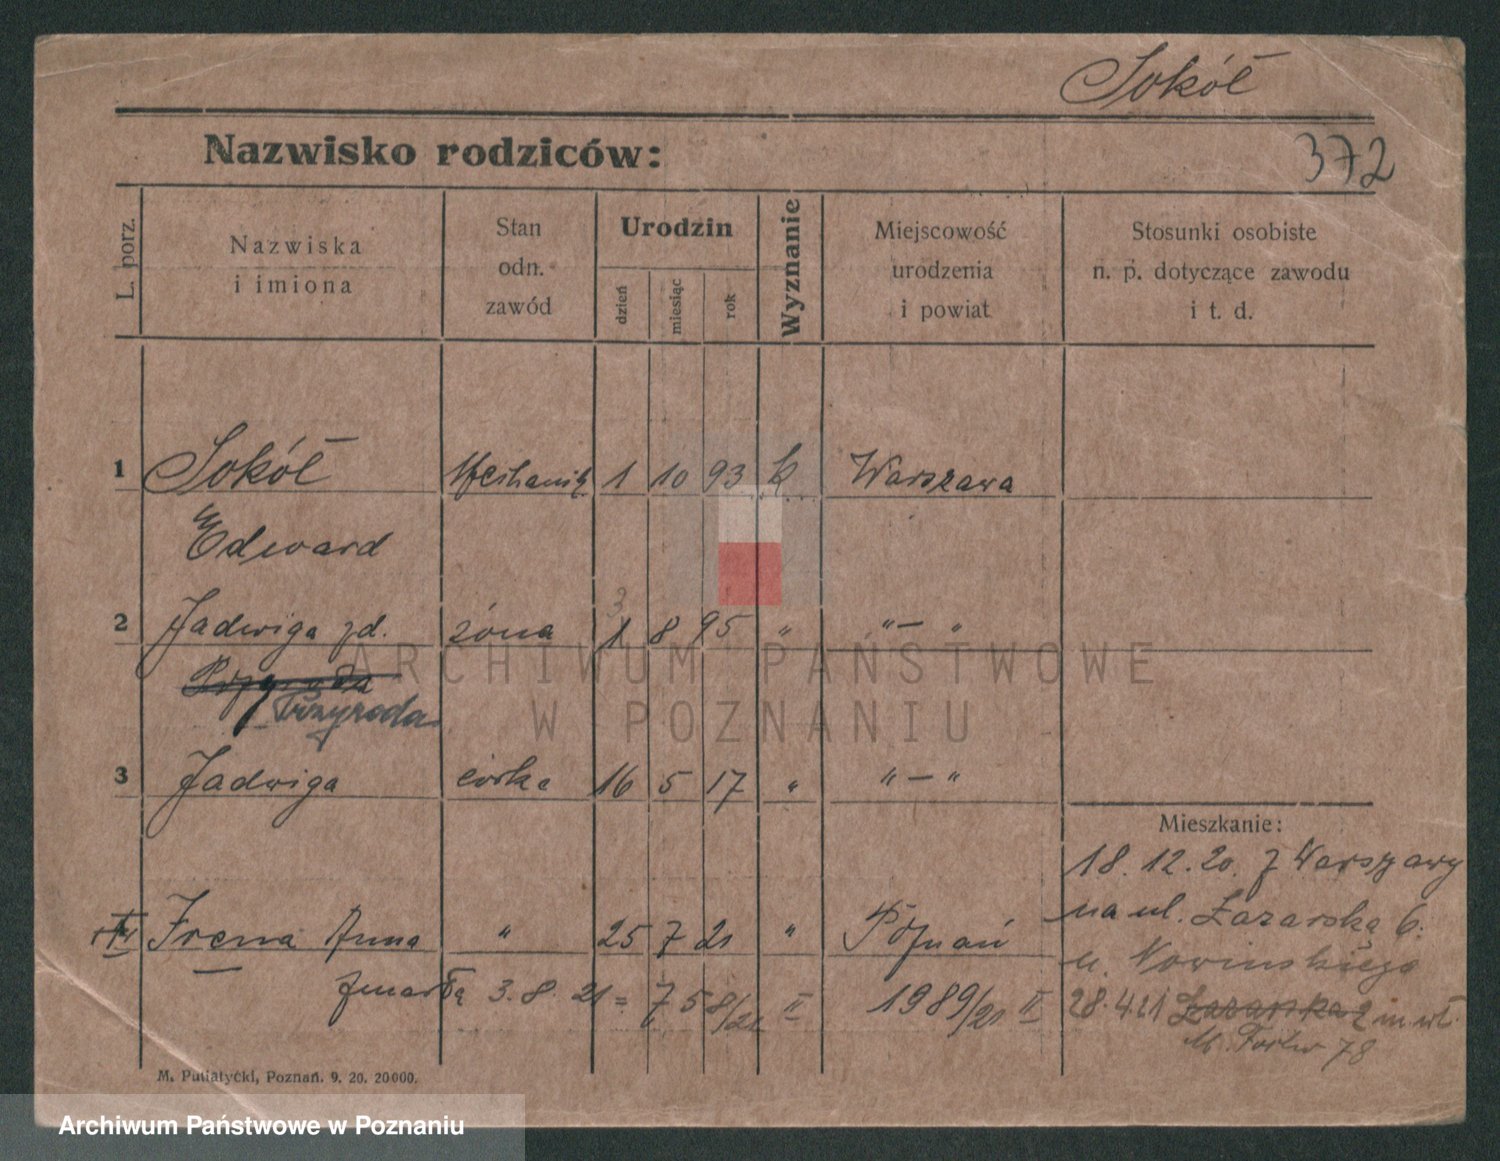 Sokół
372
Nazwisko rodziców:
L. porz.
Nazwiska
i imiona
Stan
odn.
zawód
Urodzin
dzień
miesiąc
rok
Wyznanie
Miejscowość
urodzenia
i powiat
Stosunki osobiste
n. p. dotyczące zawodu
i t. d.
1 Sokół Mechanik 1 10 93 k Warszawa
Edward
3
2 Jadwiga zd. żona 1 8 95 " "—"
Przyroda
Przyroda
ARCHIWUM PAŃSTWOWE
W POZNANIU
3 Jadwiga córka 16 5 17 " "—"
Mieszkanie:
18. 12. 20. z Warszawy
na ul. Łazarska 6.
u. Nowińskiego
Irena Anna " 25 7 21 " Poznań
zmarła 3. 8. 21 = 758/21 II 1989/21 II
28.4.21 Łazarska 2 m. wł.
78
M. Putiatycki, Poznań. 9. 20. 20000.
Archiwum Państwowe w Poznaniu